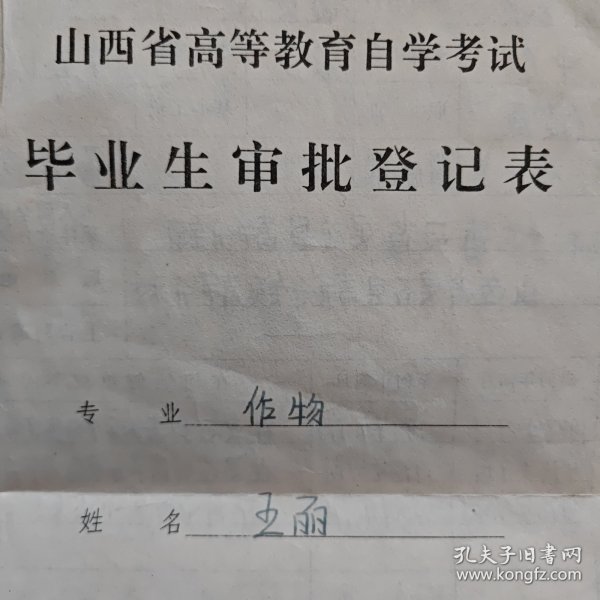 山西省高等教育自学考试
毕业生审批登记表
专 业 作物
姓 名 王丽
孔夫子旧书网
www.kongfz.com